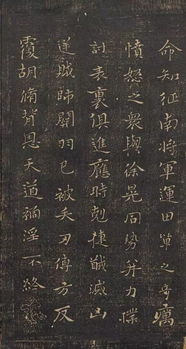 命知征南將軍運田單之奇厲
憤怒之衆與徐晃同勢并力撲
討表裏俱進應時剋捷馘滅凶
逆賊帥關羽已被矢刃傅方反
覆胡脩背恩天道禍淫不終厥